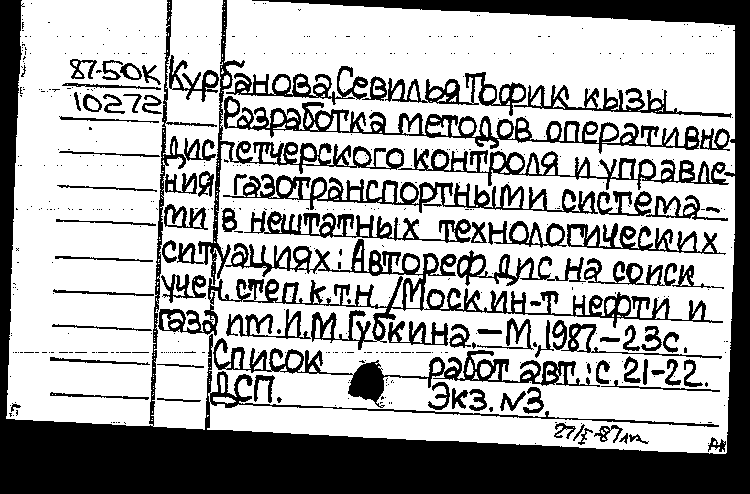 87-50К Курбанова, Севилья Тофик кызы.
10272 Разработка методов оперативно-
диспетчерского контроля и управле-
ния газотранспортными система-
ми в нештатных технологических
ситуациях: Автореф. дис. на соиск.
учен. степ. к.т.н. /Моск. ин-т нефти и
газа им. И.М. Губкина. — М., 1987. — 23с.
Список работ авт.: с. 21-22.
ДСП. Экз. №3.